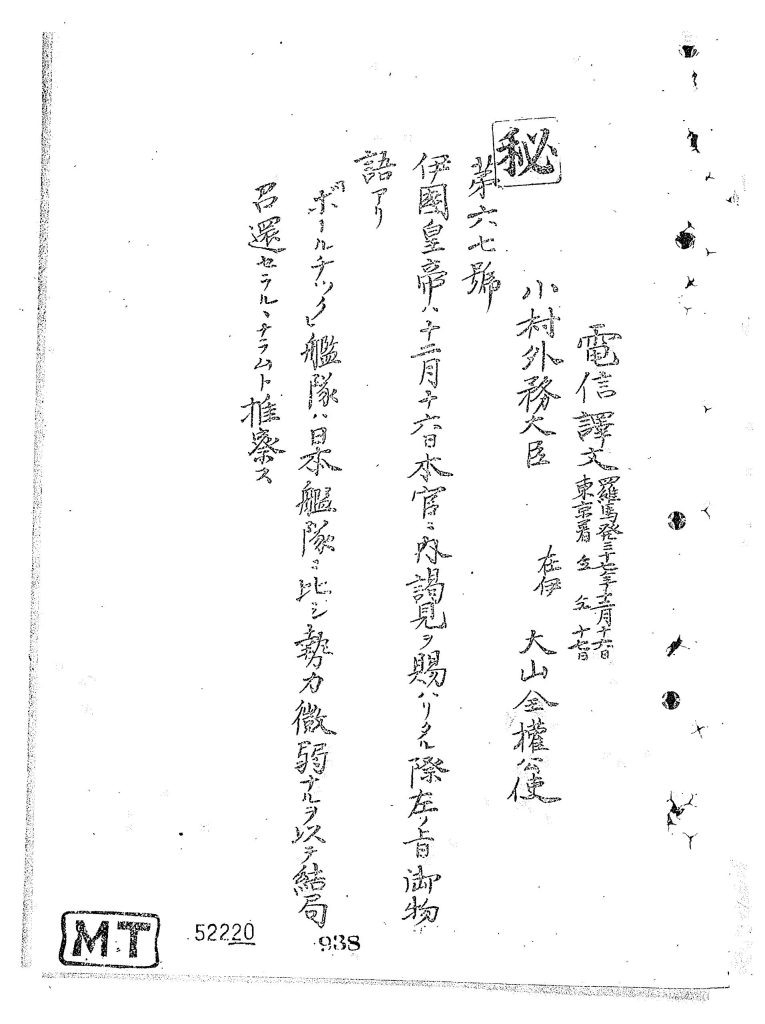 秘
電信譯文
羅馬發三十七年十二月十六日
東京着仝仝十七日
小村外務大臣
在伊 大山全權公使
第六七號
伊國皇帝ハ十二月十六日本官ニ内謁見ヲ賜ハリタル際左ノ旨御物
語アリ
「ボールチック」艦隊ハ日本艦隊ニ比シ勢力微弱ナルヲ以テ結局
召還セラルヽナラムト推察ス
MT
52220
938